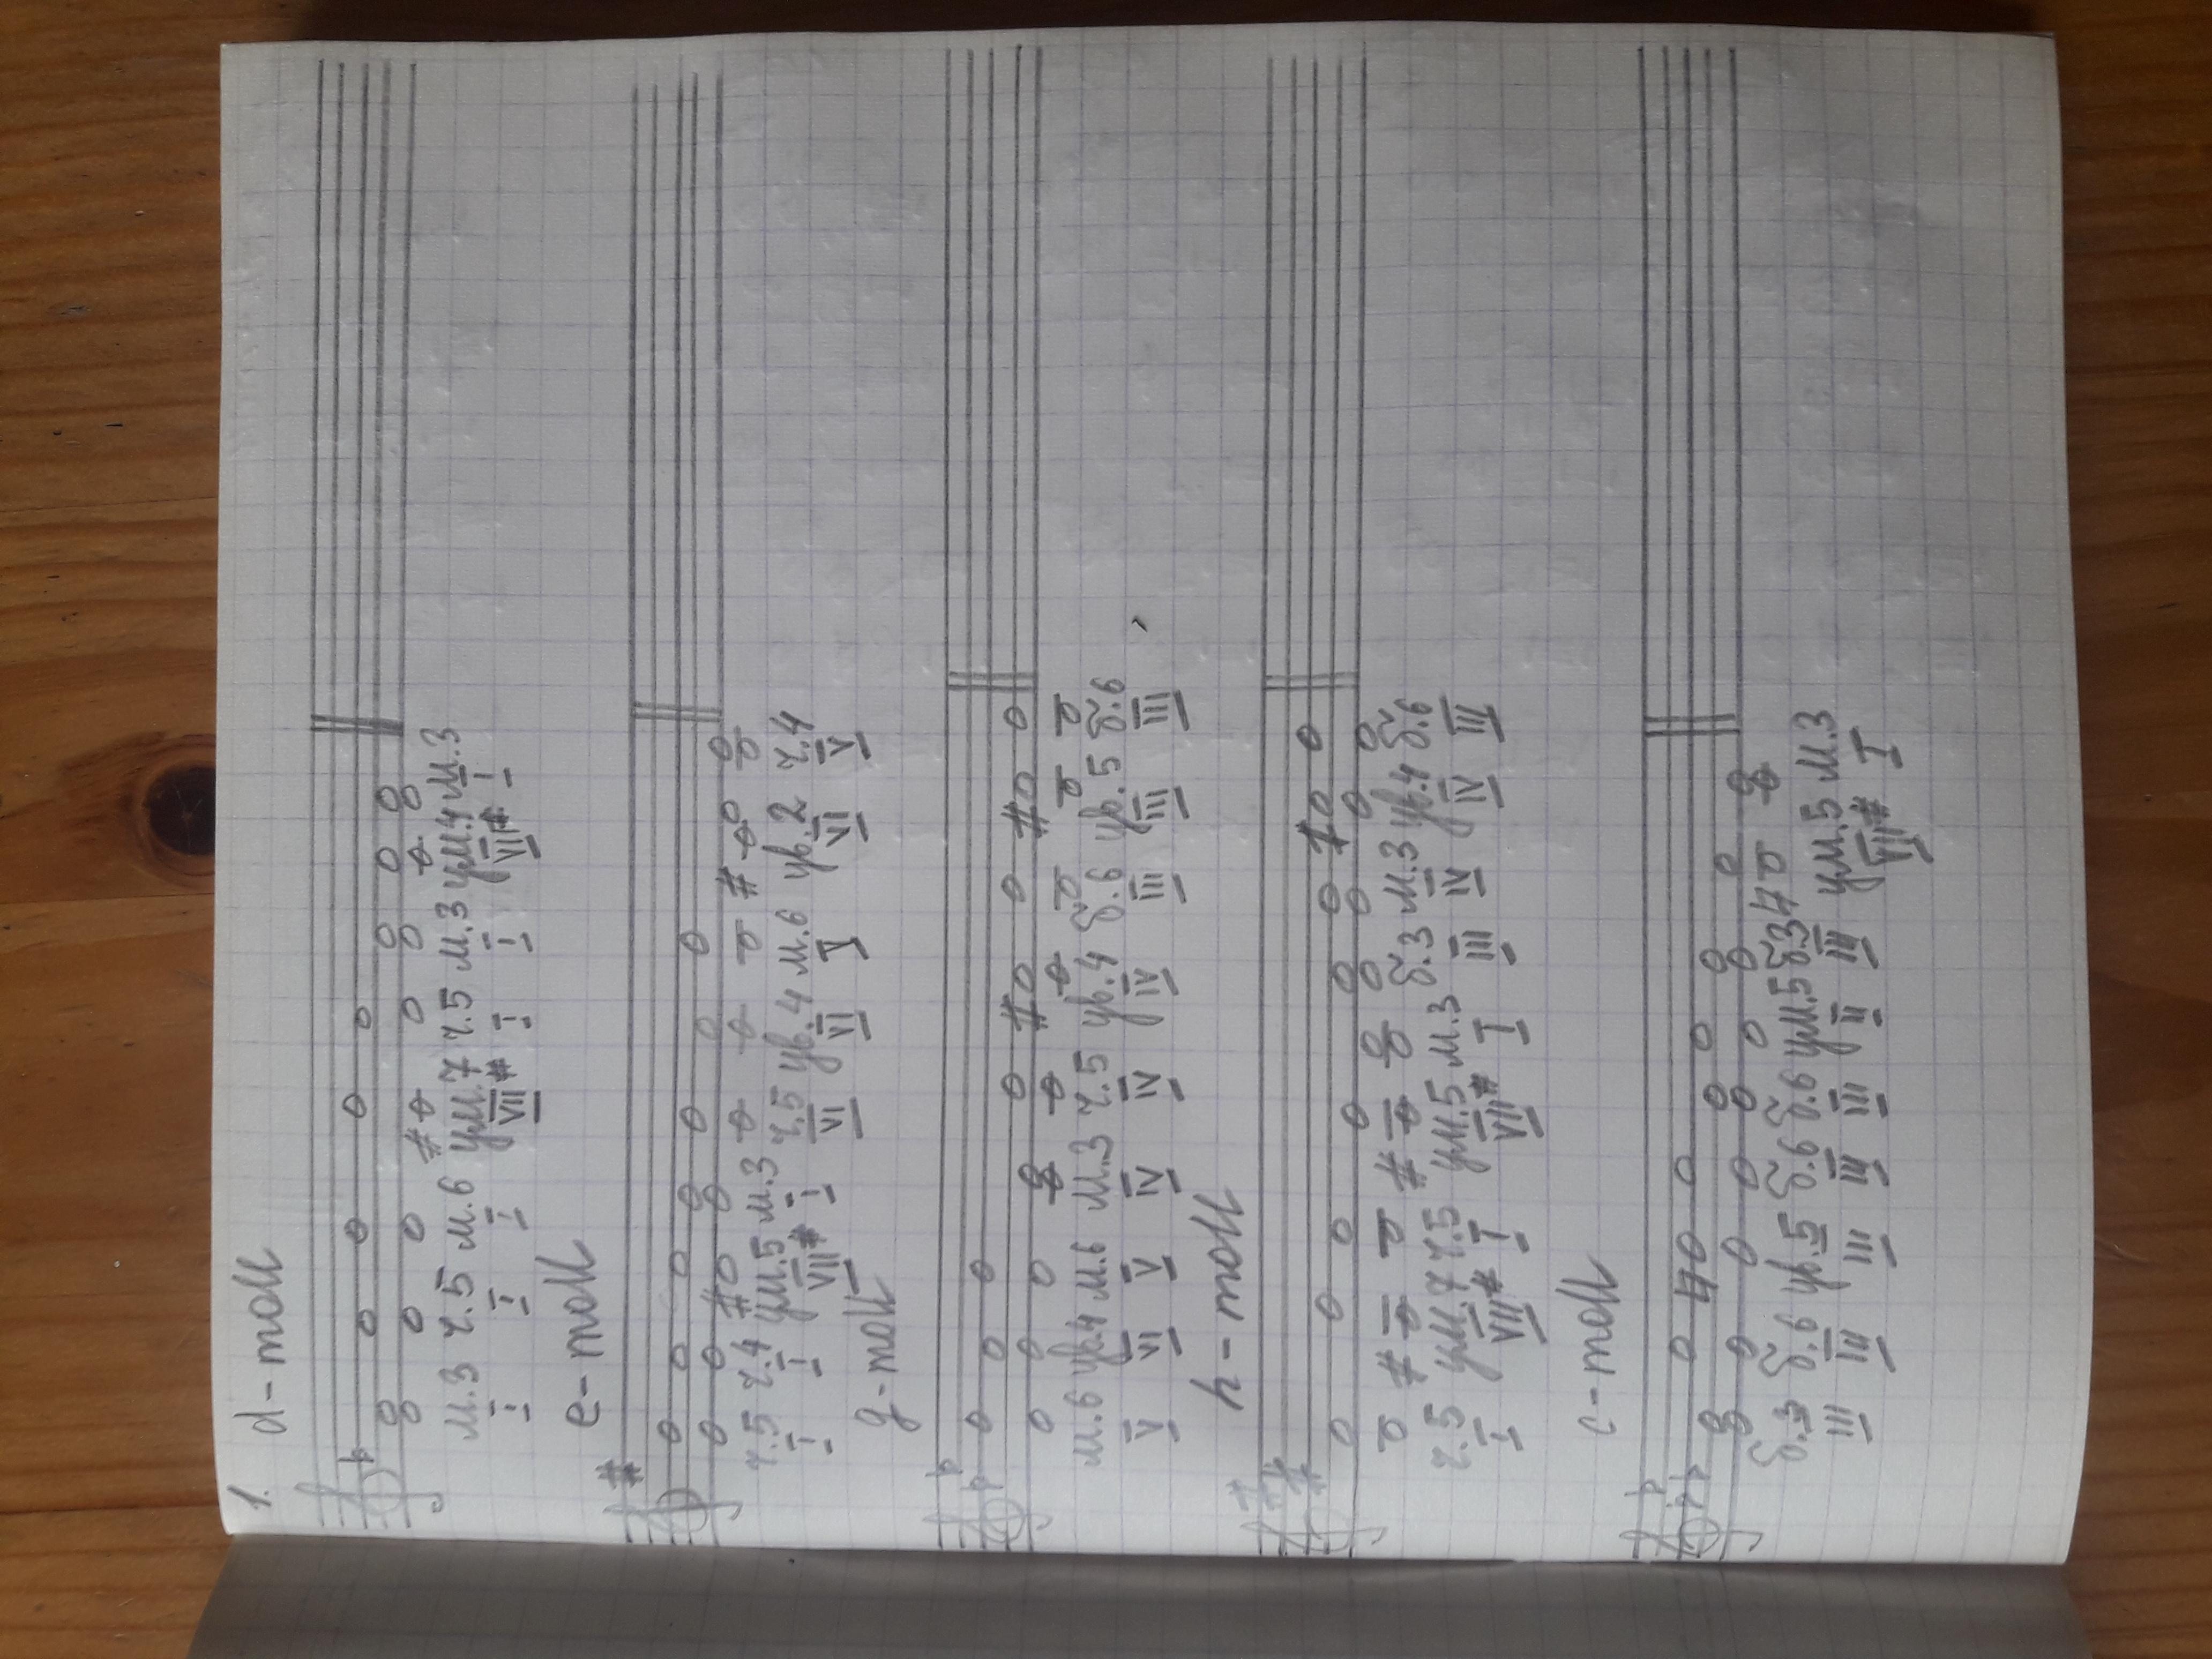 1. d-moll
м.3 ч.5 м.6 ум.7 ч.5 м.3 ум.4 м.3
I I I VII# I I VII# I
e-moll
ч.5 ч.4 ум.5 м.3 ч.5 ув.4 м.6 ув.2 ч.4
I I VII# I VI VI V VI V
g-moll
м.6 ув.4 м.6 м.3 ч.5 ув.4 б.6 ув.5 б.6
V VI V IV IV IV III III III
h-moll
ч.5 ум.7 ч.5 ум.5 м.3 б.3 м.3 ув.4 б.6
I VII# I VII# I III IV IV III
c-moll
б.3 б.6 ув.5 б.6 б.6 ум.5 б.3 ум.5 м.3
III III III III III II III VII# I